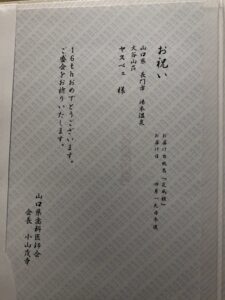 お祝い
山口県 長門市 湯本温泉
大谷山荘
ヤスベェ 様
16thおめでとうございます。
ご盛会をお祈りいたします。
山口県歯科医師会
会長 小山茂幸